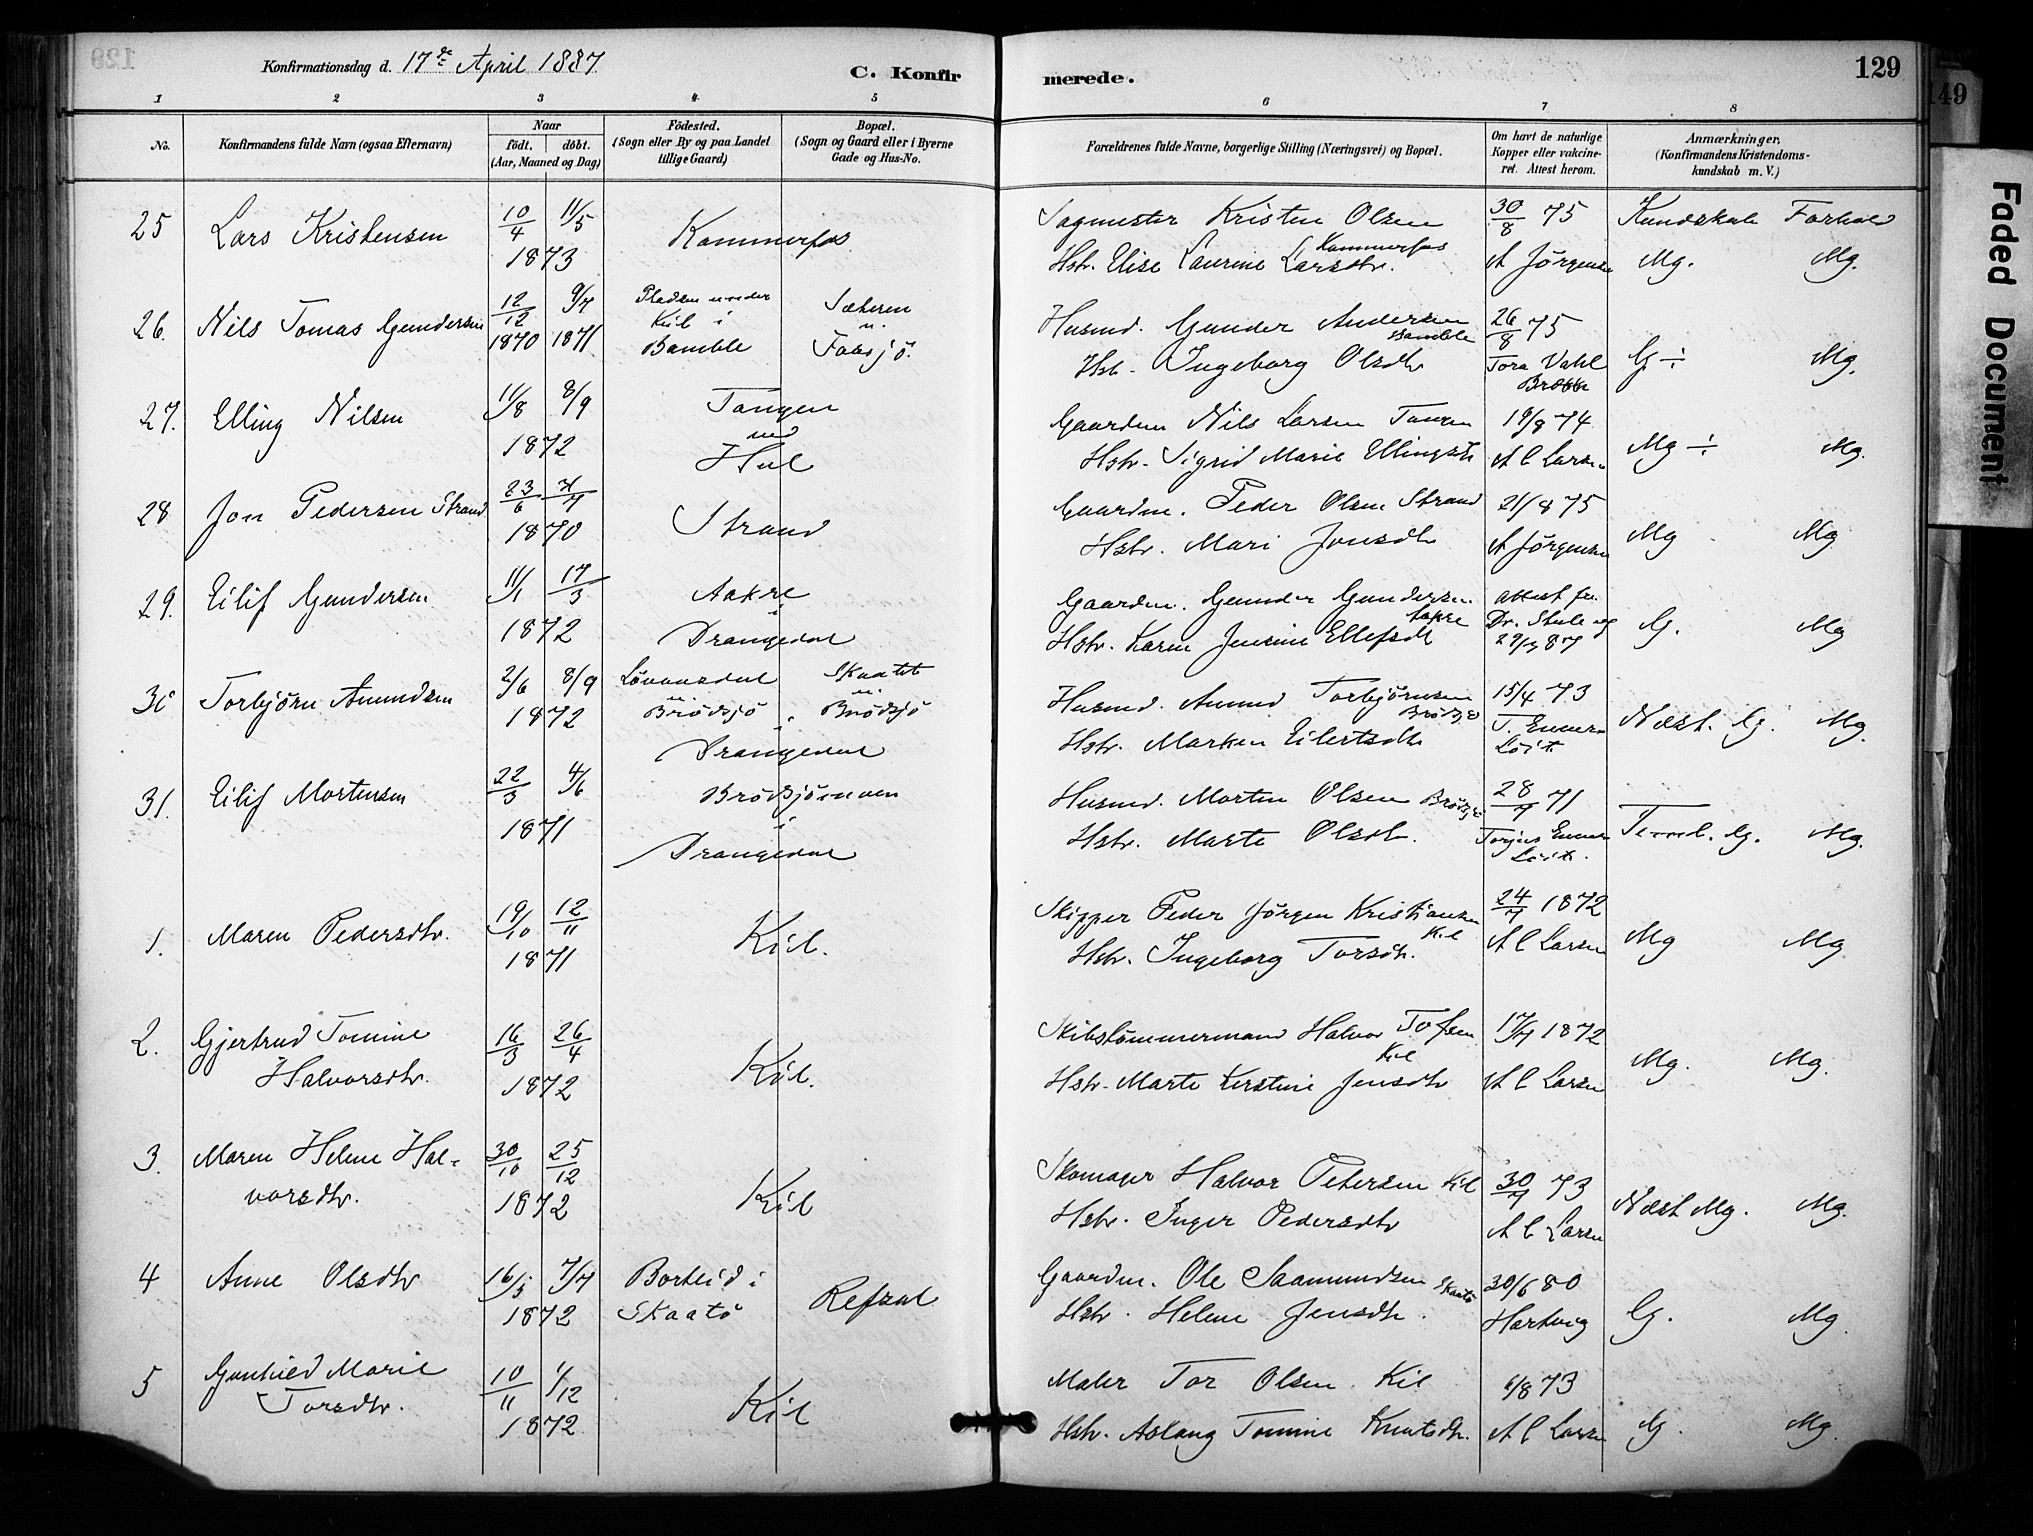 Konfirmationsdag d. 17de April 1887.
C. Konfirmerede.
129
1 2 3 4 5 6 7 8
No.
Konfirmandens fulde Navn (ogsaa Efternavn)
Naar
født. døbt.
(Aar, Maaned og Dag)
Fødested.
(Sogn eller By og paa Landet
tillige Gaard)
Bopæl.
(Sogn og Gaard eller i Byerne
Gade og Hus-No.
Forældrenes fulde Navne, borgerlige Stilling (Næringsvei) og Bopæl.
Om havt de naturlige
Kopper eller vakcine-
ret. Attest herom.
Anmærkninger,
(Konfirmandens Kristendoms-
kundskab m. V.)
25 Lars Kristensen 10/4 11/5 Kammerfos Sagmester Kristen Olsen 30/8 75 Kundskab Forhold
1873 Hstr. Elise Laurine Larsdtr. Kammerfos A Jørgensen Mg. Mg.
26. Nils Tomas Gundersen 12/12 9/7 Pladsen under Sæteren Husmd. Gunder Andersen 26/8 75
1870 1871 Kiil i u. Bamble Tora Vahl G ÷ Mg.
Bamble Fossjø. Hstr. Ingeborg Olsdtr
27. Elling Nilsen 11/8 8/9 Tangen Gaardm Nils Larsen 19/8 74
1872 Hul Hstr. Sigrid Marie Ellingsdtr A C Larsen Mg ÷ Mg.
28 Jon Pedersen Strand 23/6 Strand Gaardm. Peder Olsen Strand 21/8 75
1870 Hstr. Mari Jonsdtr A Jørgensen Mg Mg
29. Eilif Gundersen 11/1 17/3 Aakre Gaardm. Gunder Gundersen Aakre attest fra
1872 i Drangedal Hstr. Karen Jensine Ellefsdtr Dr. G. Mg
30 Torbjørn Amundsen 2/6 8/9 Løvaasdal Skaatet Husmd. Amund Torbjørnsen 15/4 73
1872 u. Brødsjø u. Brødsjø Brødsjø Næst. G. Mg.
i Drangedal Hstr. Marken Eilertsdtr
31. Eilif Mortensen 22/3 4/6 Husmd. Morten Olsen Brødsjø 28/7 71
1871 i Drangedal Hstr. Marte Olsdtr. Torjus Temml. G. Mg.
1. Maren Pedersdtr. 19/10 12/11 Kiil. Skipper Peder Jørgen Kristiansen 24/7 1872
1871 Kil Hstr. Ingeborg Torsdtr. A C Larsen Mg Mg
2. Gjertrud Tomine 16/3 26/4 Kil. Skibstømmermand Halvor 17/7 1872
Halvorsdtr. 1872 Kil Hstr. Marte Kirstine Jensdtr A C Larsen Mg. Mg.
3. Maren Helene Hal- 30/10 25/12 Kil Skomager Halvor Petersen Kil 30/7 73
vorsdtr. 1872 Hstr. Inger Pedersdtr A C Larsen Næst Mg. Mg.
4 Anne Olsdtr 16/5 7/7 Borteid i Refsal Gaardm. Ole Saamundsen Skaatø 30/6 80
1872 Skaatø Hstr. Helene Jensdtr. Hartvig G. Mg.
5 Gunhild Marie 10/11 1/12 Kil Maler Tor Olsen Kil 6/8 73
Torsdtr. 1872 Hstr. Aslaug Tomine Knutsdtr. A C Larsen G. Mg.
149
Faded Document